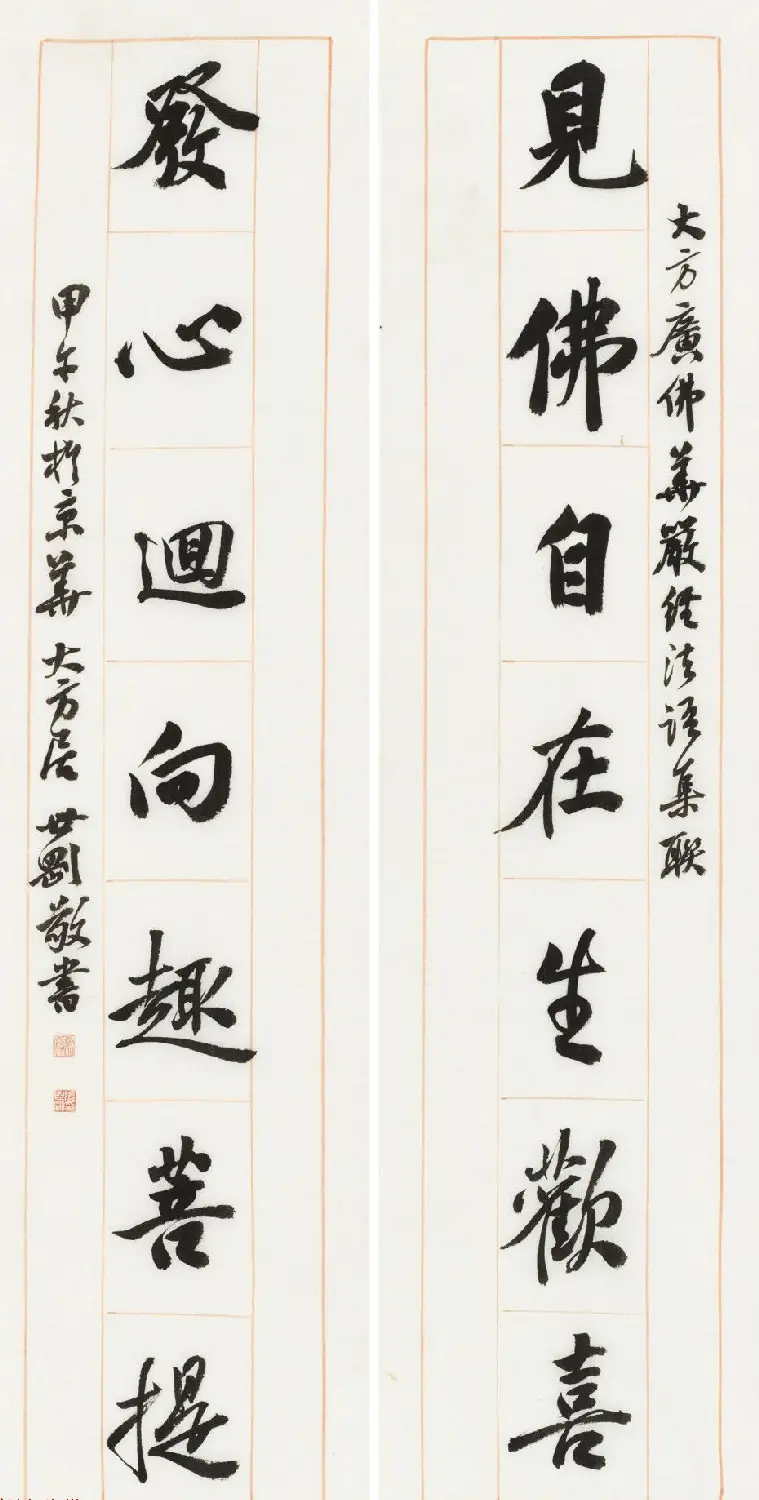 大方廣佛華嚴经法语集联
見佛自在生歡喜
發心迴向趣菩提
甲午秋於京華大方居世剛敬書